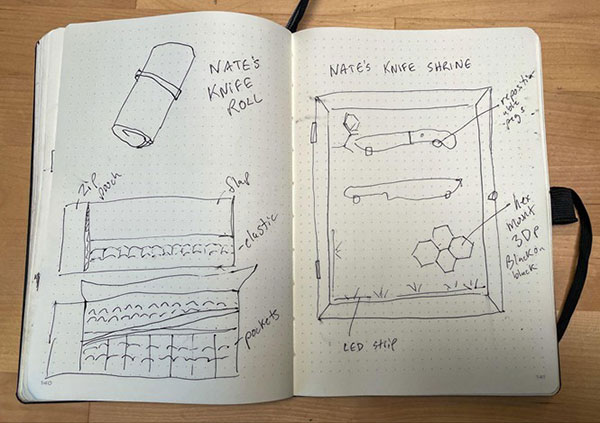 NATE'S
KNIFE
ROLL
Zip
pooch
flap
elastic
pockets
140
NATE'S KNIFE SHRINE
reposition
able
pegs
hex
Mount
3DP
Black on
black
LED strip
141